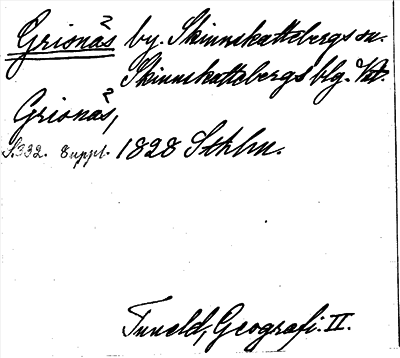 Grionäs by. Skinnskattebergs sn.
Skinnskattebergs blg. Vstm.
Grionäs,
S. 332. Suppl. 1828 Sthlm.
Tuneld, Geografi. II.